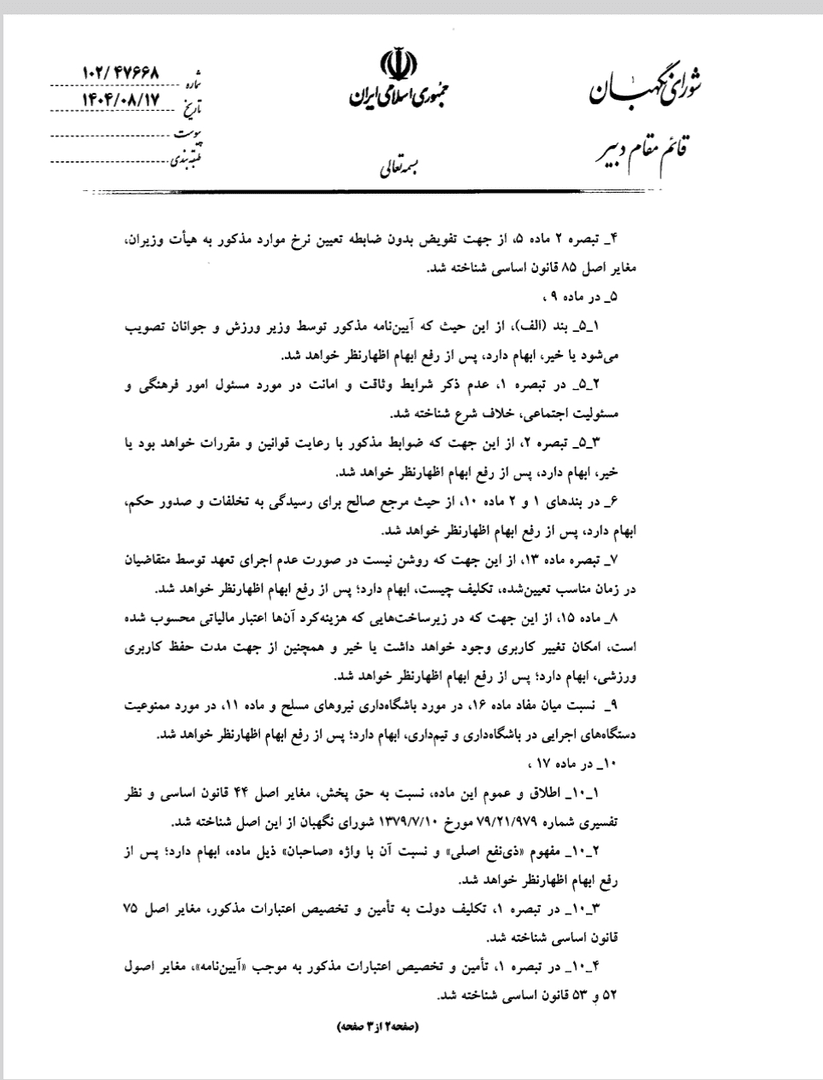 شورای نگهبان
قائم مقام دبیر
جمهوری اسلامی ایران
بسمه تعالی
شماره ۱۰۲/۴۷۶۶۸
تاریخ ۱۴۰۴/۰۸/۱۷
پیوست
طبقه بندی
۴_ تبصره ۲ ماده ۵، از جهت تفویض بدون ضابطه تعیین نرخ موارد مذکور به هیأت وزیران،
مغایر اصل ۸۵ قانون اساسی شناخته شد.
۵_ در ماده ۹ ،
۱_۵_ بند (الف)، از این حیث که آیین‌نامه مذکور توسط وزیر ورزش و جوانان تصویب
می‌شود یا خیر، ابهام دارد، پس از رفع ابهام اظهارنظر خواهد شد.
۲_۵_ در تبصره ۱، عدم ذکر شرایط وثاقت و امانت در مورد مسئول امور فرهنگی و
مسئولیت اجتماعی، خلاف شرع شناخته شد.
۳_۵_ تبصره ۲، از این جهت که ضوابط مذکور با رعایت قوانین و مقررات خواهد بود یا
خیر، ابهام دارد، پس از رفع ابهام اظهارنظر خواهد شد.
۶_ در بندهای ۱ و ۲ ماده ۱۰، از حیث مرجع صالح برای رسیدگی به تخلفات و صدور حکم،
ابهام دارد، پس از رفع ابهام اظهارنظر خواهد شد.
۷_ تبصره ماده ۱۳، از این جهت که روشن نیست در صورت عدم اجرای تعهد توسط متقاضیان
در زمان مناسب تعیین‌شده، تکلیف چیست، ابهام دارد؛ پس از رفع ابهام اظهارنظر خواهد شد.
۸_ ماده ۱۵، از این جهت که در زیرساخت‌هایی که هزینه‌کرد آن‌ها اعتبار مالیاتی محسوب شده
است، امکان تغییر کاربری وجود خواهد داشت یا خیر و همچنین از جهت مدت حفظ کاربری
ورزشی، ابهام دارد؛ پس از رفع ابهام اظهارنظر خواهد شد.
۹_ نسبت میان مفاد ماده ۱۶، در مورد باشگاه‌داری نیروهای مسلح و ماده ۱۱، در مورد ممنوعیت
دستگاه‌های اجرایی در باشگاه‌داری و تیم‌داری، ابهام دارد؛ پس از رفع ابهام اظهارنظر خواهد شد.
۱۰_ در ماده ۱۷ ،
۱_۱۰_ اطلاق و عموم این ماده، نسبت به حق پخش، مغایر اصل ۴۴ قانون اساسی و نظر
تفسیری شماره ۷۹/۲۱/۹۷۹ مورخ ۱۳۷۹/۷/۱۰ شورای نگهبان از این اصل شناخته شد.
۲_۱۰_ مفهوم «ذی‌نفع اصلی» و نسبت آن با واژه «صاحبان» ذیل ماده، ابهام دارد؛ پس از
رفع ابهام اظهارنظر خواهد شد.
۳_۱۰_ در تبصره ۱، تکلیف دولت به تأمین و تخصیص اعتبارات مذکور، مغایر اصل ۷۵
قانون اساسی شناخته شد.
۴_۱۰_ در تبصره ۱، تأمین و تخصیص اعتبارات مذکور به موجب «آیین‌نامه»، مغایر اصول
۵۲ و ۵۳ قانون اساسی شناخته شد.
(صفحه۲ از۳ صفحه)